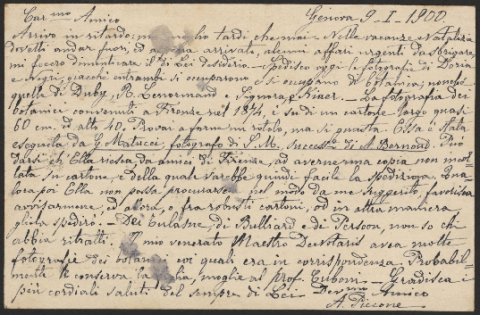 Car.mo Amico Genova 9-I-1900.
Arrivo in ritardo: ma meglio tardi, che mai. Nelle vacanze natalizie
dovetti andar fuori, ed appena arrivato, alcuni affari urgenti da sbrigare,
mi fecero dimenticare il di Lei desiderio. - Spedisco oggi le fotografie di Doria
e Negri, giacchè entrambi si occuparono e si occupano di botanica; nonchè
quella di Duby, R. Lenormand e Signora Kiner. - La fotografia dei
botanici convenuti a Firenze nel 1874, è su di un cartone largo quasi
60 cm. ed alto 40. Provai a farne un rotolo, ma si guasta. Essa è stata
eseguita da G. Matucci, fotografo di S. M. success.re di A. Bernoud. Può
darsi che Ella riesca, da amici di Firenze, ad averne una copia non incol-
lata su cartone, e della quale sarebbe quindi facile la spedizione. Qua-
lora poi Ella non possa procurarsela nel modo da me suggerito, favorisca
avvisarmene, ed allora, o fra robusti cartoni, od in altra maniera
gliela spedirò. - Dei Tulasne, di Bulliard e de Persoon, non so chi
abbia ritratti. Il mio venerato Maestro DeNotaris avea molte
fotografie dei botanici coi quali era in corrispondenza. Probabil-
mente le conserva la figlia, moglie al prof. Cuboni. - Gradisca i
più cordiali saluti del sempre di Lei Dev.mo Amico
A. Piccone